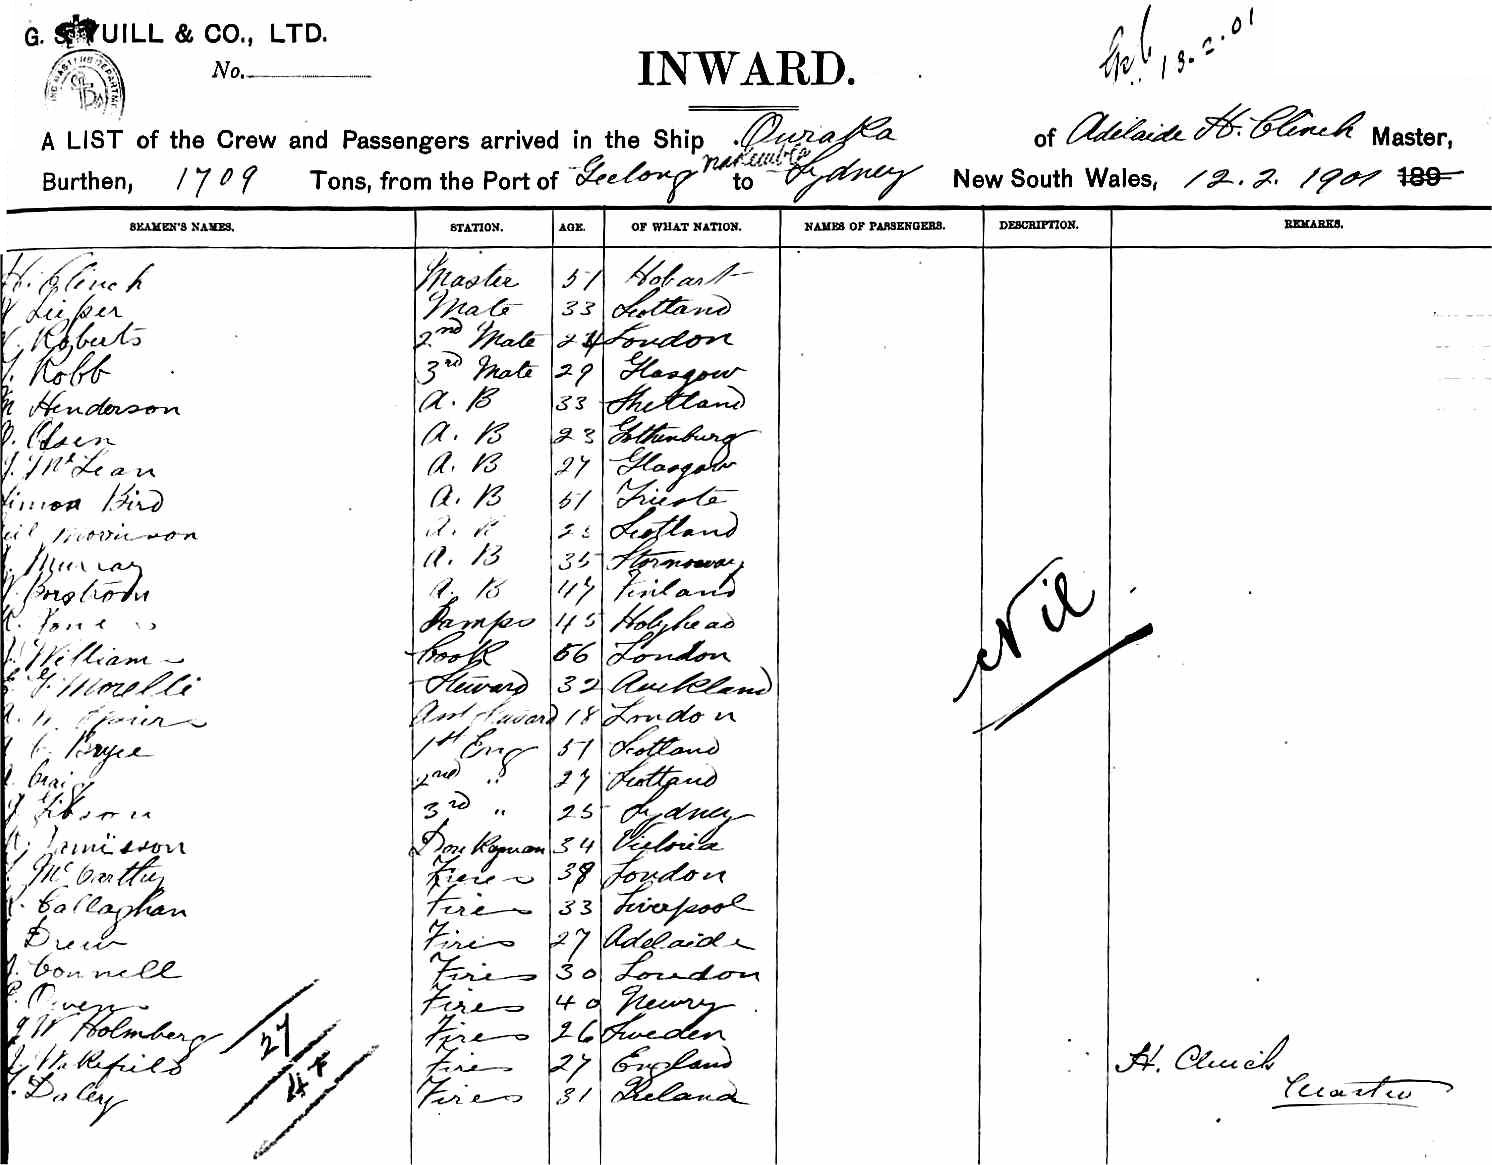 G. S. YUILL & CO., LTD.
No.
INWARD.
13.2.01
A LIST of the Crew and Passengers arrived in the Ship Ouraka of Adelaide H. Clinch Master,
Burthen, 1709 Tons, from the Port of Geelong to Sydney New South Wales, 12.2.1901 189
SEAMEN'S NAMES. STATION. AGE. OF WHAT NATION. NAMES OF PASSENGERS. DESCRIPTION. REMARKS.
H. Clinch Master 51 Hobart
Lieper Mate 33 Scotland
Roberts 2nd Mate 24 London
Robb 3rd Mate 29 Glasgow
Henderson A.B 33 Shetland
Olsen A.B 23 Gothenburg
McLean A.B 27 Glasgow
Simon Bird A.B 51 Trieste
Morrison A.B Scotland
Murray A.B 35 Stornoway
A.B 47 Finland
Jones Lamps 45 Holyhead
Williams Cook 56 London
Morelli Steward 32 Auckland
18 London
Bryce 1st Eng 51 Scotland
Craig 2nd " 27 Scotland
Gibson 3rd " 25 Sydney
Jamieson Donkeyman 34 Victoria
McCarthy Fires 38 London
Callaghan Fires 33 Liverpool
Drew Fires 27 Adelaide
Connell Fires 30 London
Owens Fires 40 Newry
W Holmberg Fires 26 Sweden
Wakefield Fires 27 England
Daley Fires 31 Ireland
27
Nil
H. Clinch
Master